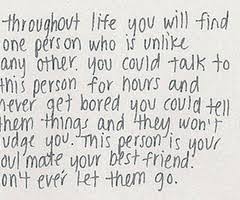 throughout life you will find
one person who is unlike
any other. you could talk to
this person for hours and
never get bored you could tell
them things and they won't
udge you. This person is your
oul mate your best friend.
on't ever let them go.